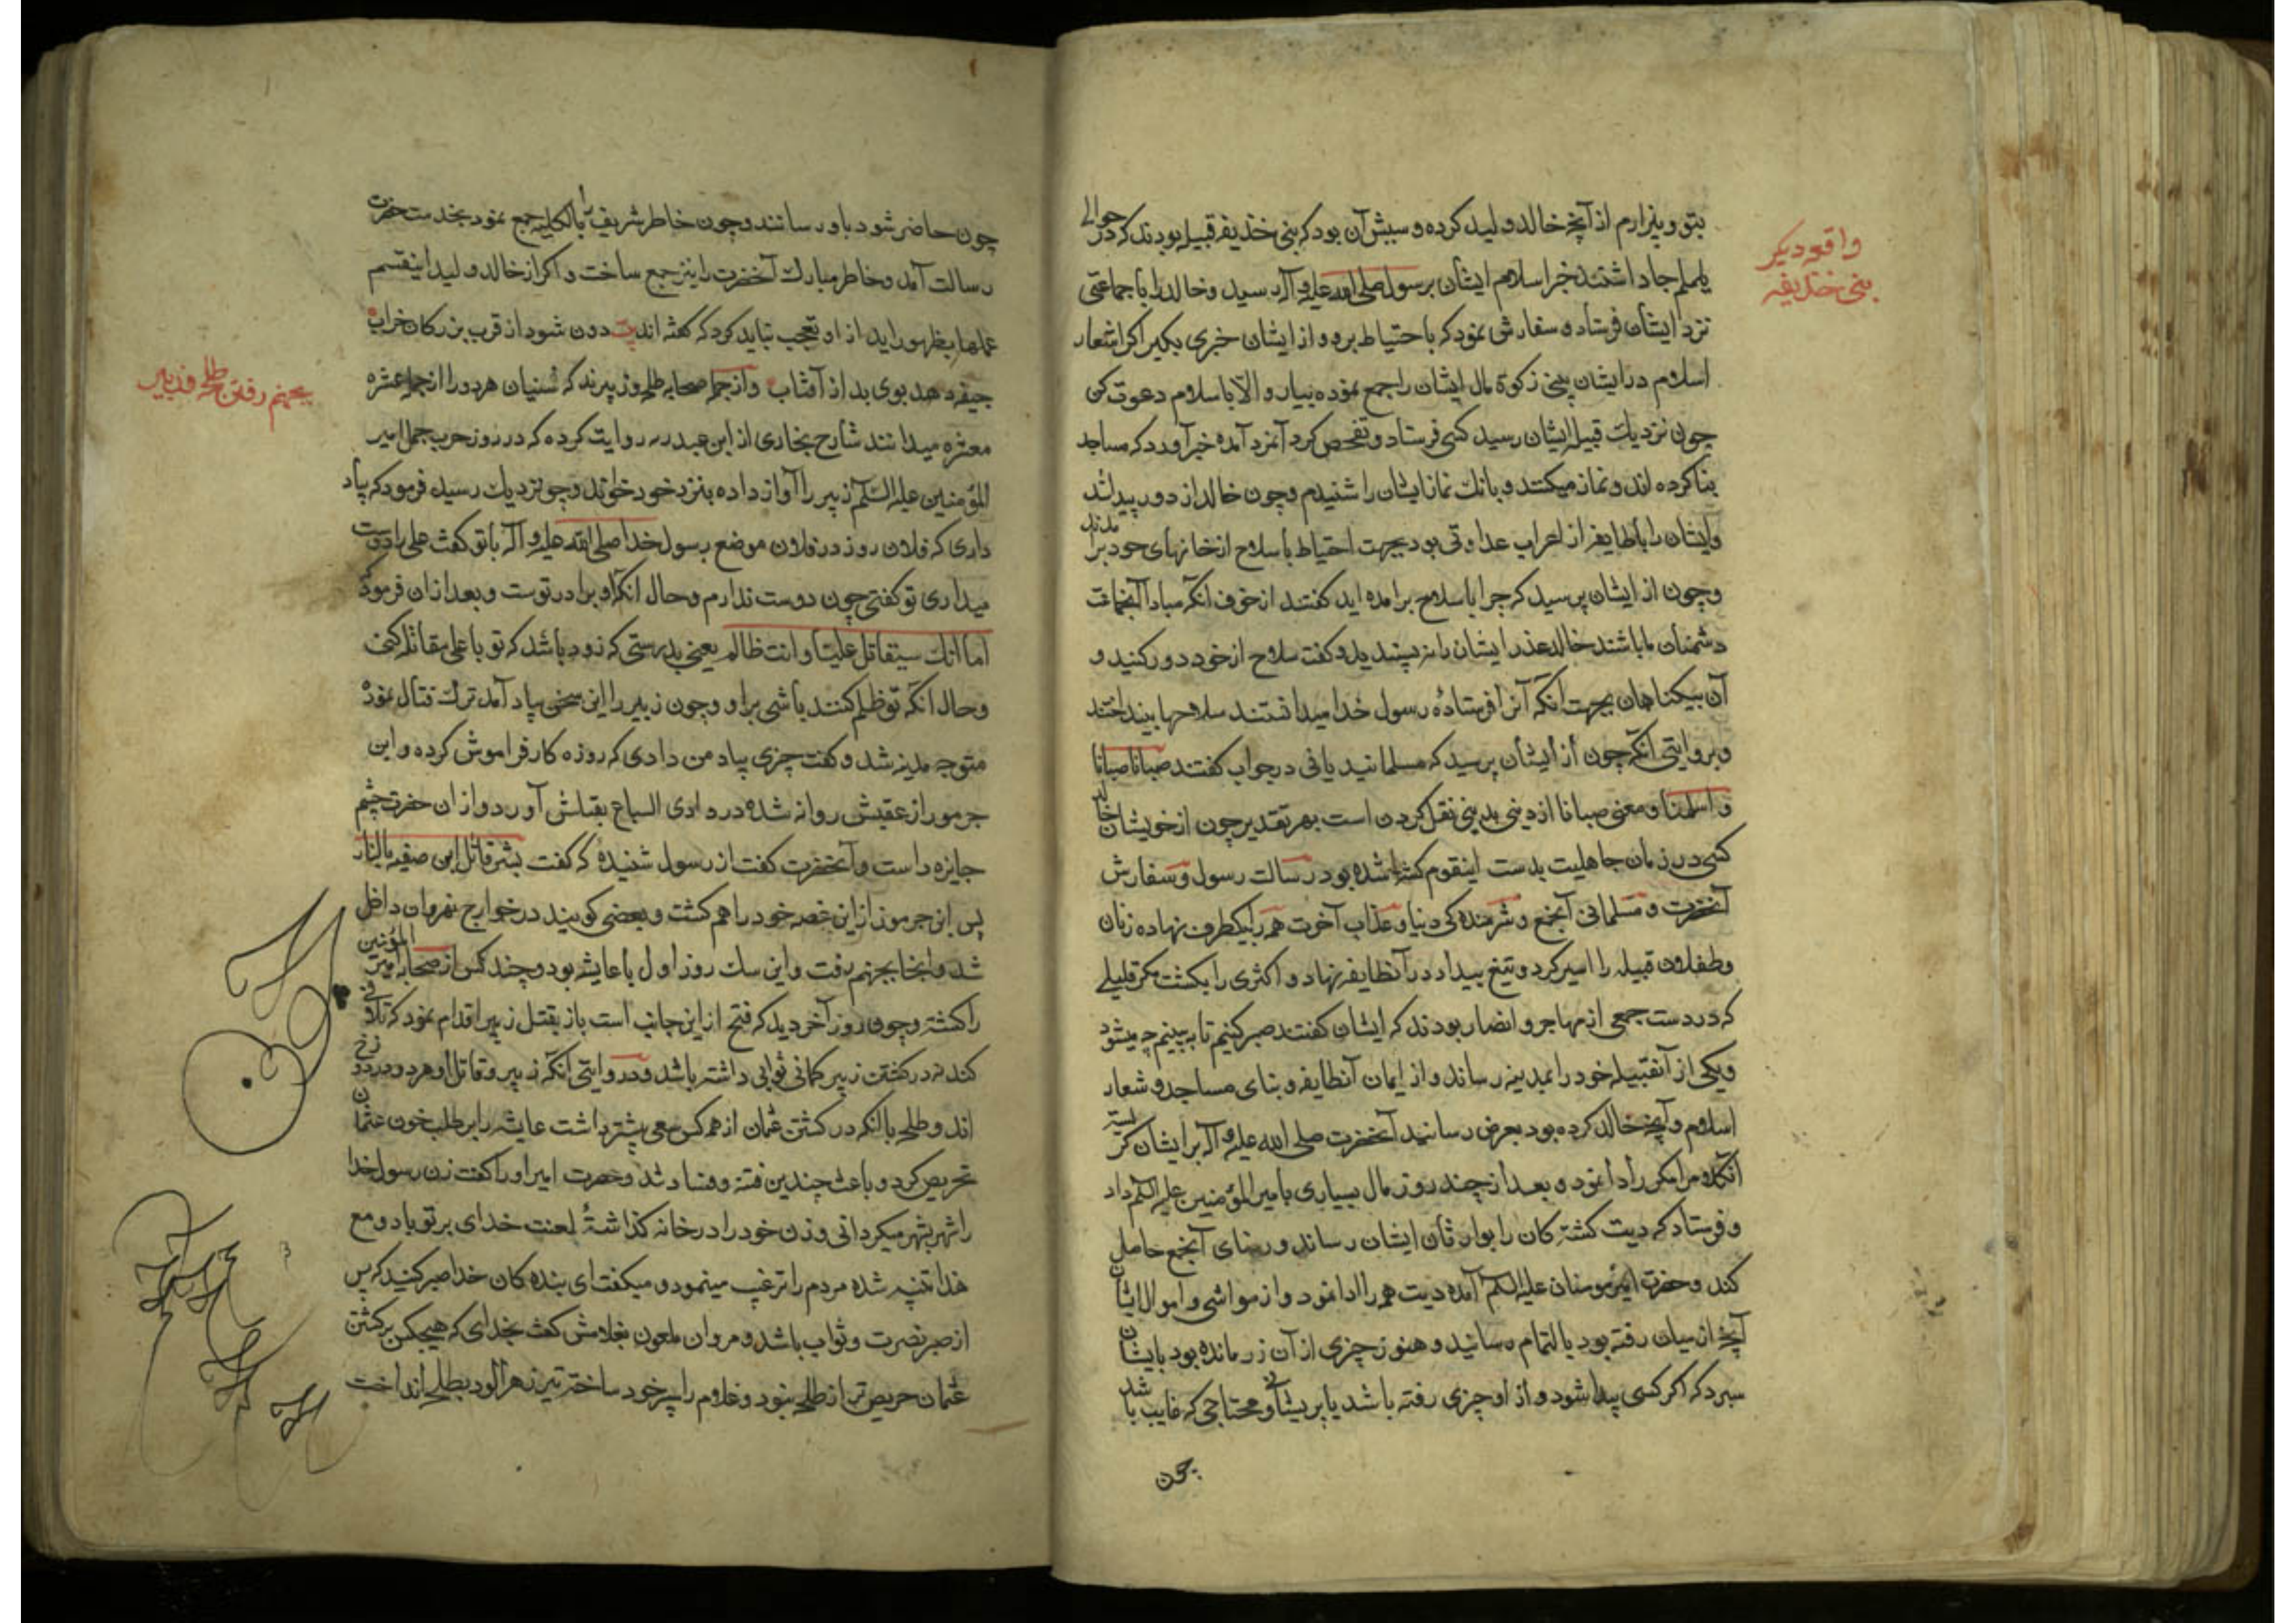 واقعه دیکر
بنی خذیفه
بتو و بیزارم از آنچه خالد ولید کرده و سببش آن بود که بنی خذیفه قبیله بودند که در حوالی
یلملم جا داشتند خبر اسلام ایشان برسول صلی الله علیه و آله رسید و خالد را با جماعتی
نزد ایشان فرستاد و سفارش نمود که باحتیاط برو و از ایشان خبری بکیر اکر اشعار
اسلام در ایشان بینی زکوة مال ایشان را جمع نموده بیار و الا باسلام دعوت کن
چون نزدیک قبیله ایشان رسید کسی فرستاد و تفحص کرد آنمزد آمده خبر آورد که مساجد
بنا کرده اند و نماز میکنند و بانک نماز ایشان را شنیدم و چون خالد از دور پیدا شد
و ایشان را با طایفه از اعراب عداوتی بود بجهت احتیاط با سلاح از خانهای خود برآمدند
و چون از ایشان پرسید که چرا با سلاح برآمده اید کفتند از خوف انکه مبادا آنجماعت
دشمنان ما باشند خالد عذر ایشان را نپسندید و کفت سلاح از خود دور کنید و
آن بیکناهان بجهت انکه آنرا فرستادهٔ رسول خدا میدانستند سلاحها بینداختند
و بروایتی انکه چون از ایشان پرسید که مسلمانید یا نی در جواب کفتند صبانا صبانا
و اسلمنا و معنی صبانا از دینی بدینی نقل کردن است بهر تقدیر چون از خویشان خالد
کسی در زمان جاهلیت بدست اینقوم کشته شده بود رسالت رسول و سفارش
آنحضرت و مسلمانی آنجمع و شرمنده کی دنیا و عذاب آخوت همه را بیکطرف نهاده زنان
و طفلان قبیله را اسیر کرد و تیغ بیداد در آنطایفه نهاد و اکثری را بکشت مکر قلیلی
که در دست جمعی از مهاجر و انصار بودند که ایشان کفتند صبر کنیم تا ببینیم چه میشود
و یکی از آنقبیله خود را بمدینه رساند و از ایمان آنطایفه و بنای مساجد و شعار
اسلام و آنچه خالد کرده بود بعرض رسانید آنحضرت صلی الله علیه و آله بر ایشان کریسته
آنکلام مکرر را ادا نمود و بعد از چند روز مال بسیاری بامیرالمؤمنین علیه السلم داد
و فرستاد که دیت کشته کان را بوارثان ایشان رساند و رضای آنجمع حاصل
کند و حضرت امیرمومنان علیه السلم آمده دیت همه را ادا نمود و از مواشی و اموال ایشان
آنچه از میان رفته بود بالتمام رسانید و هنوز چیزی از آن زر مانده بود بایشان
سپرد که اکر کسی پیدا شود و از او چیزی رفته باشد یا پریشانی و محتاجی که غایب باشد
چون
چون حاضر شود باو رسانند و چون خاطر شریف را بالکلیه جمع نمود بخدمت حضرت
رسالت آمد و خاطر مبارک آنحضرت را نیز جمع ساخت و اکر از خالد ولید اینقسم
عملها بظهور اید از او تعجب نباید کرد که کفته اند بیت دون شود از قرب بزرکان خراب
جیفه دهد بوی بد از آفتاب و از جمله صحابه طلحه و زبیرند که سنیان هر دو را از جمله عشره
بجهنم رفتن طلحه و زبیر
مبشره میدانند شارح بخاری از ابن عبد ربه روایت کرده که در روز حرب جمل امیر
المؤمنین علیه السلم زبیر را آواز داده بنزد خود خواند و چون نزدیک رسید فرمود که بیاد
داری که فلان روز در فلان موضع رسول خدا صلی الله علیه و آله با تو کفت علی را دوست
میداری تو کفتی چون دوست ندارم و حال انکه او برادر توست و بعد از ان فرمود که
اما انک سیقاتل علیا و انت ظالم یعنی بدرستی که زود باشد که تو با علی مقاتله کنی
و حال انکه تو ظلم کننده باشی بر او و چون زبیر را این سخن بیاد آمد ترک قتال نموده
متوجه مدینه شد و کفت چیزی بیاد من دادی که روزه کار فراموش کرده و ابن
جرموز از عقبش روانه شده در وادی السباع بقتلش آورد و از ان حضرت چشم
جایزه داست و آنحضرت کفت از رسول شنیده که کفت بشر قاتل ابن صفیه بالنار
پس ابن جرموز از این غصه خود را هم کشت و بعضی کویند در خوارج نهروان داخل
شد و انجا بجهنم رفت و این سک روز اول با عایشه بود و چند کس از صحابه امیرالمؤمنین
را کشته و چون روز آخر دید که فتح از این جانب است باز بقتل زبیر اقدام نمود که تلافی
کند نه در کشتن زبیر کمانی ثوابی داشته باشد و در روایتی انکه زبیر و قاتل او هر دو در دوزخ
اند و طلحه با انکه در کشتن عثمان از همه کس سعی بیشتر داشت عایشه را بر طلب خون عثمان
تحریص کرد و باعث چندین فتنه و فساد شد و حضرت امیر او را کفت زن رسول خدا
را شهر بشهر میکردانی و زن خود را در خانه کذاشتهٔ لعنت خدای بر تو باد و مع
هذا متنبه نشده مردم را ترغیب مینمود و میکفت ای بنده کان خدا صبر کنید که پس
از صبر نصرت و ثواب باشد و مروان ملعون بغلامش کفت بخدای که هیچکس بر کشتن
عثمان حریص تر از طلحه نبود و غلام را سپر خود ساخته تیر زهرآلود بطلحه انداخت